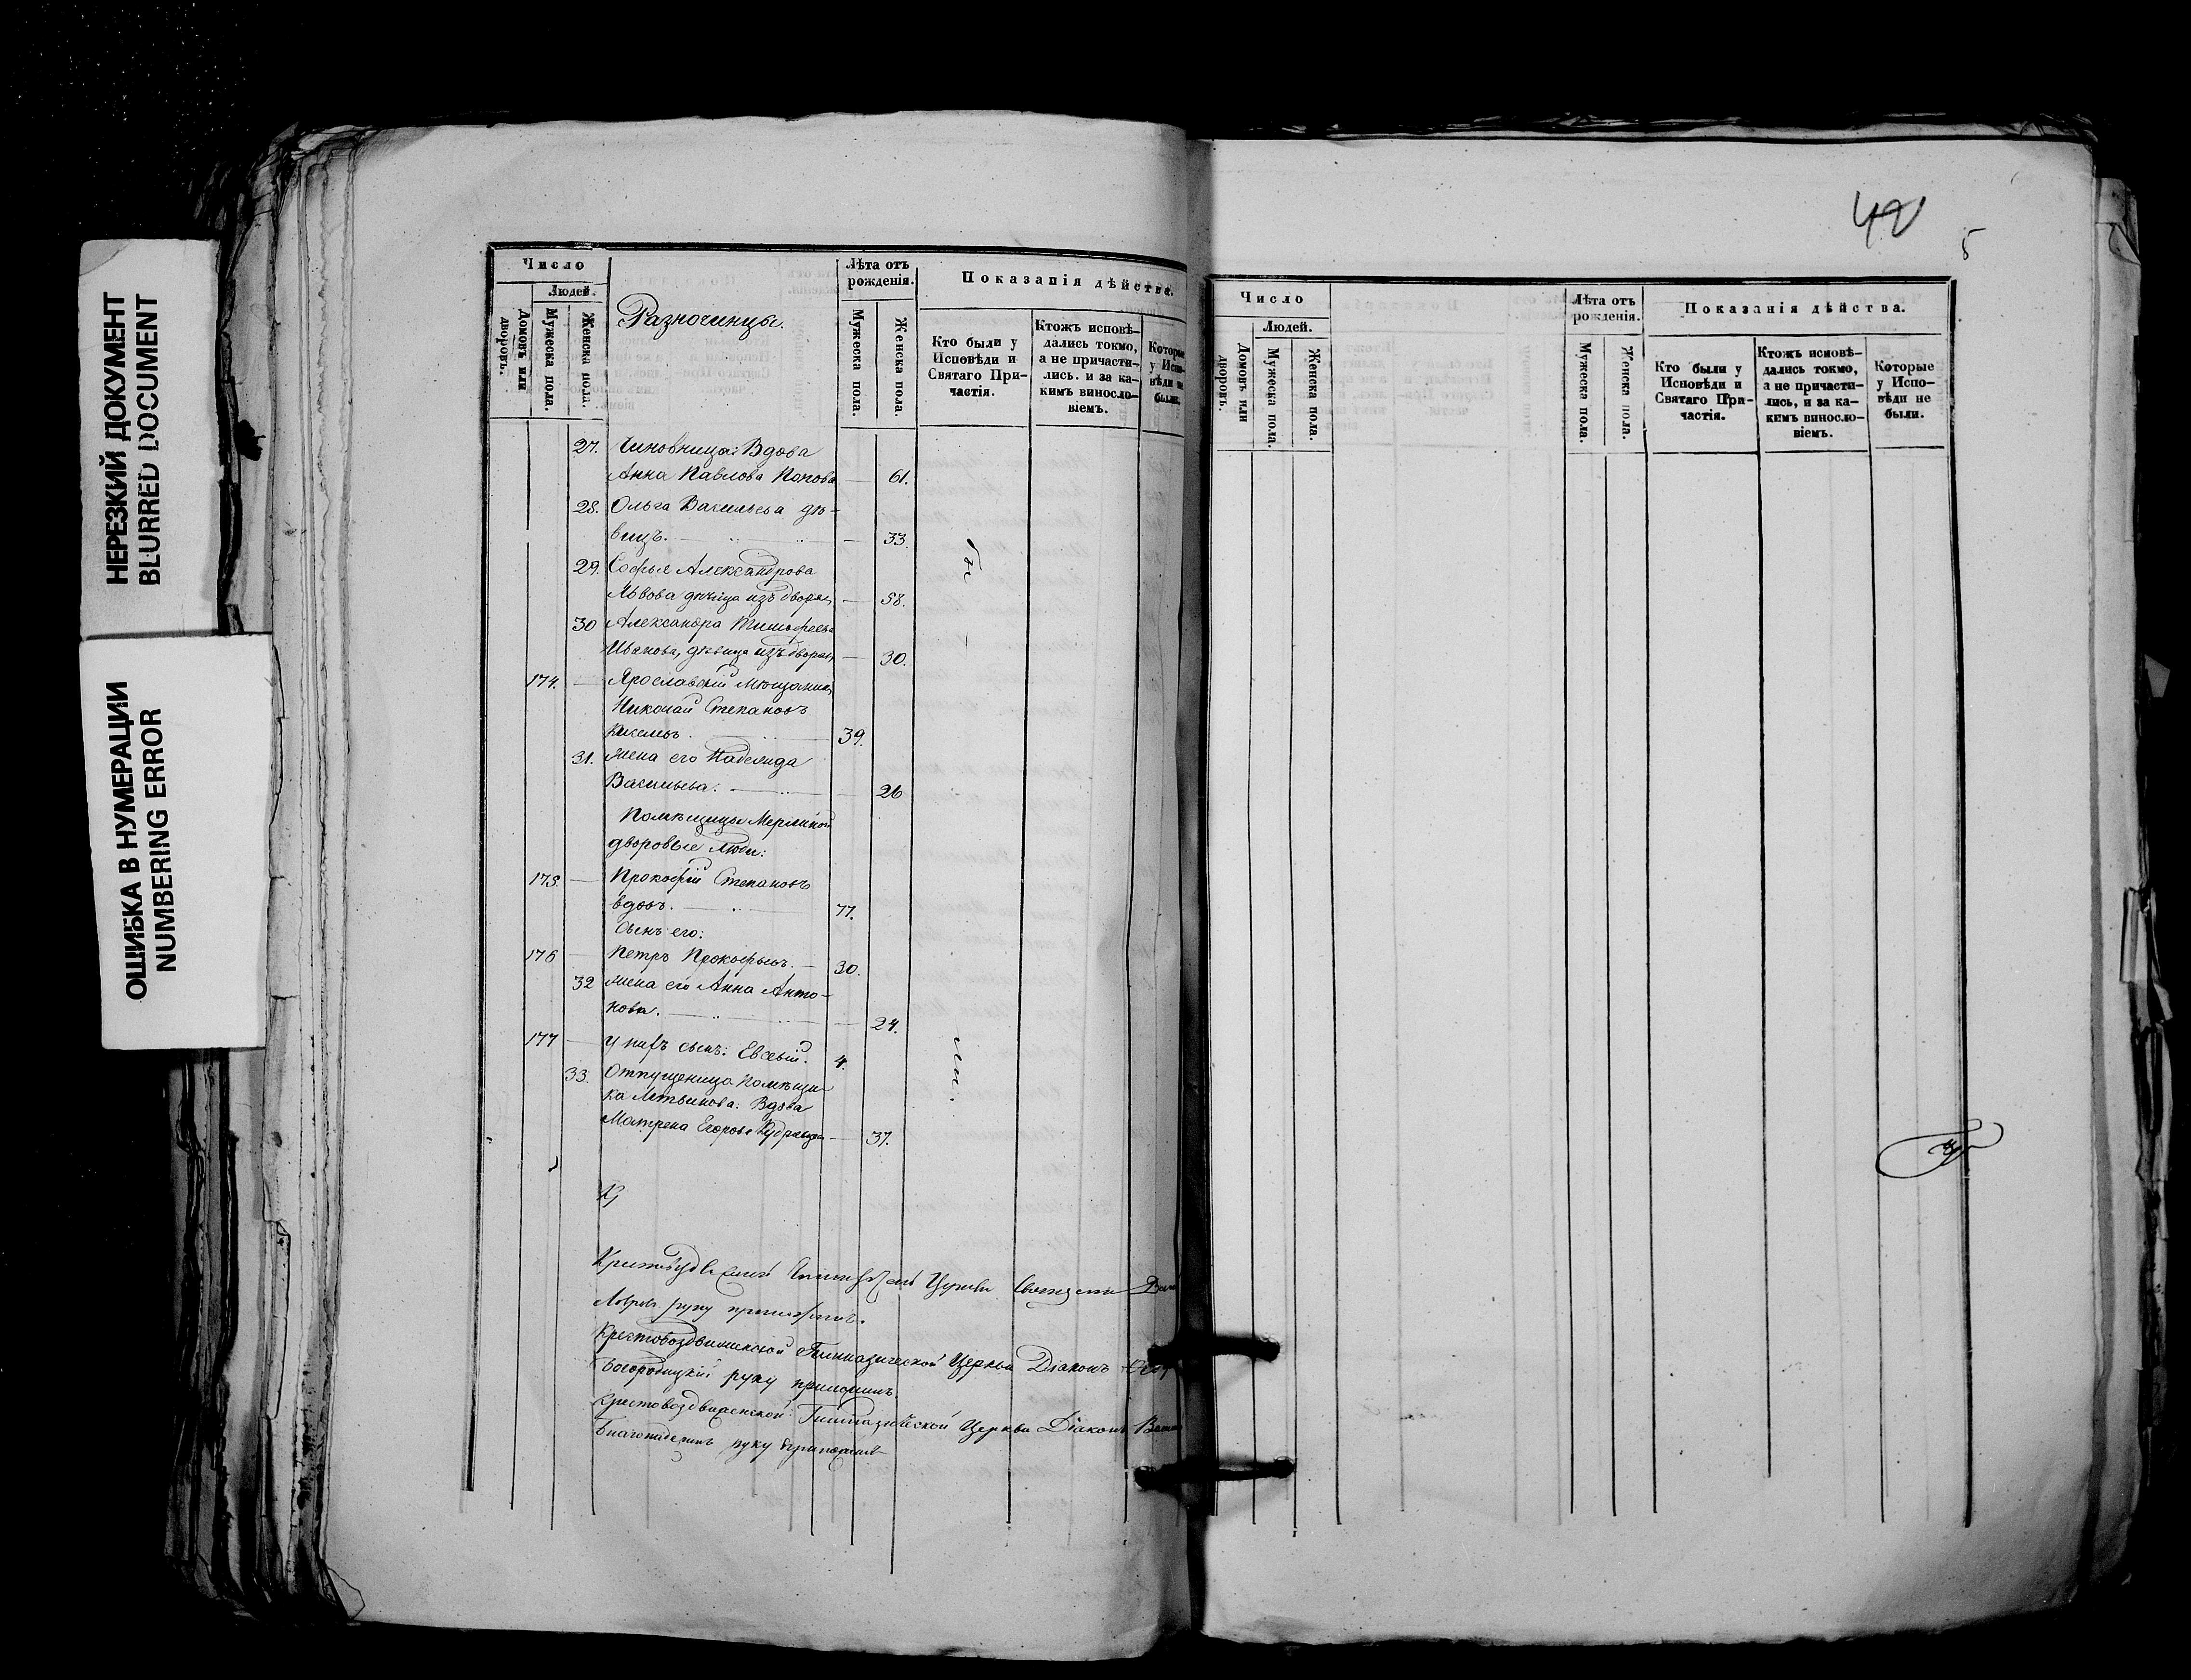 НЕРЕЗКИЙ ДОКУМЕНТ
BLURRED DOCUMENT
ОШИБКА В НУМЕРАЦИИ
NUMBERING ERROR
Число
Людей.
Домовъ или дворовъ.
Мужеска пола.
Женска пола.
Разночинцы.
Лѣта отъ рожденія.
Мужеска пола.
Женска пола.
Показанія дѣйства.
Кто были у Исповѣди и Святаго Причастія.
Ктожъ исповѣдались токмо, а не причастились. и за какимъ винословіемъ.
Которые у Исповѣди не были.
27. Чиновница: Вдова
Анна Павлова Попова — 61.
28. Ольга Васильева дѣ-
вицъ. — 33.
29. Софья Александрова
Львова дѣвица изъ дворян — 58.
30 Александра Тимофеева
Иванова, дѣвица изъ дворян — 30.
174. — Ярославскій Мѣщанин
Николай Степановъ
39.
31. Жена его Надежда
Васильева. — 26
Помѣщицы Мерлиной
дворовые люди:
175. — Прокофій Степановъ
вдовъ. — 77.
Сынъ его:
176 — Петръ Прокофьевъ. — 30.
32 Жена его Анна Анто-
нова. — 24.
177 — У нихъ сынъ: Евсевій. 4.
33. Отпущеница помѣщи-
ка Вдова
Матрена Егорова — 37.
бы-
ли.
Крестовоздвиженской Гимназической Церкви Священникъ
руку приложилъ.
Крестовоздвиженской Гимназической Церкви Діаконъ
Богородицкій руку приложилъ.
Крестовоздвиженской Гимназической Церкви Діаконъ
Благонадеждинъ руку приложилъ
42
5
Число
Людей.
Домовъ или дворовъ.
Мужеска пола.
Женска пола.
Лѣта отъ рожденія.
Мужеска пола.
Женска пола.
Показанія дѣйства.
Кто были у Исповѣди и Святаго Причастія.
Ктожъ исповѣдались токмо, а не причастились, и за какимъ винословіемъ.
Которые у Исповѣди не были.